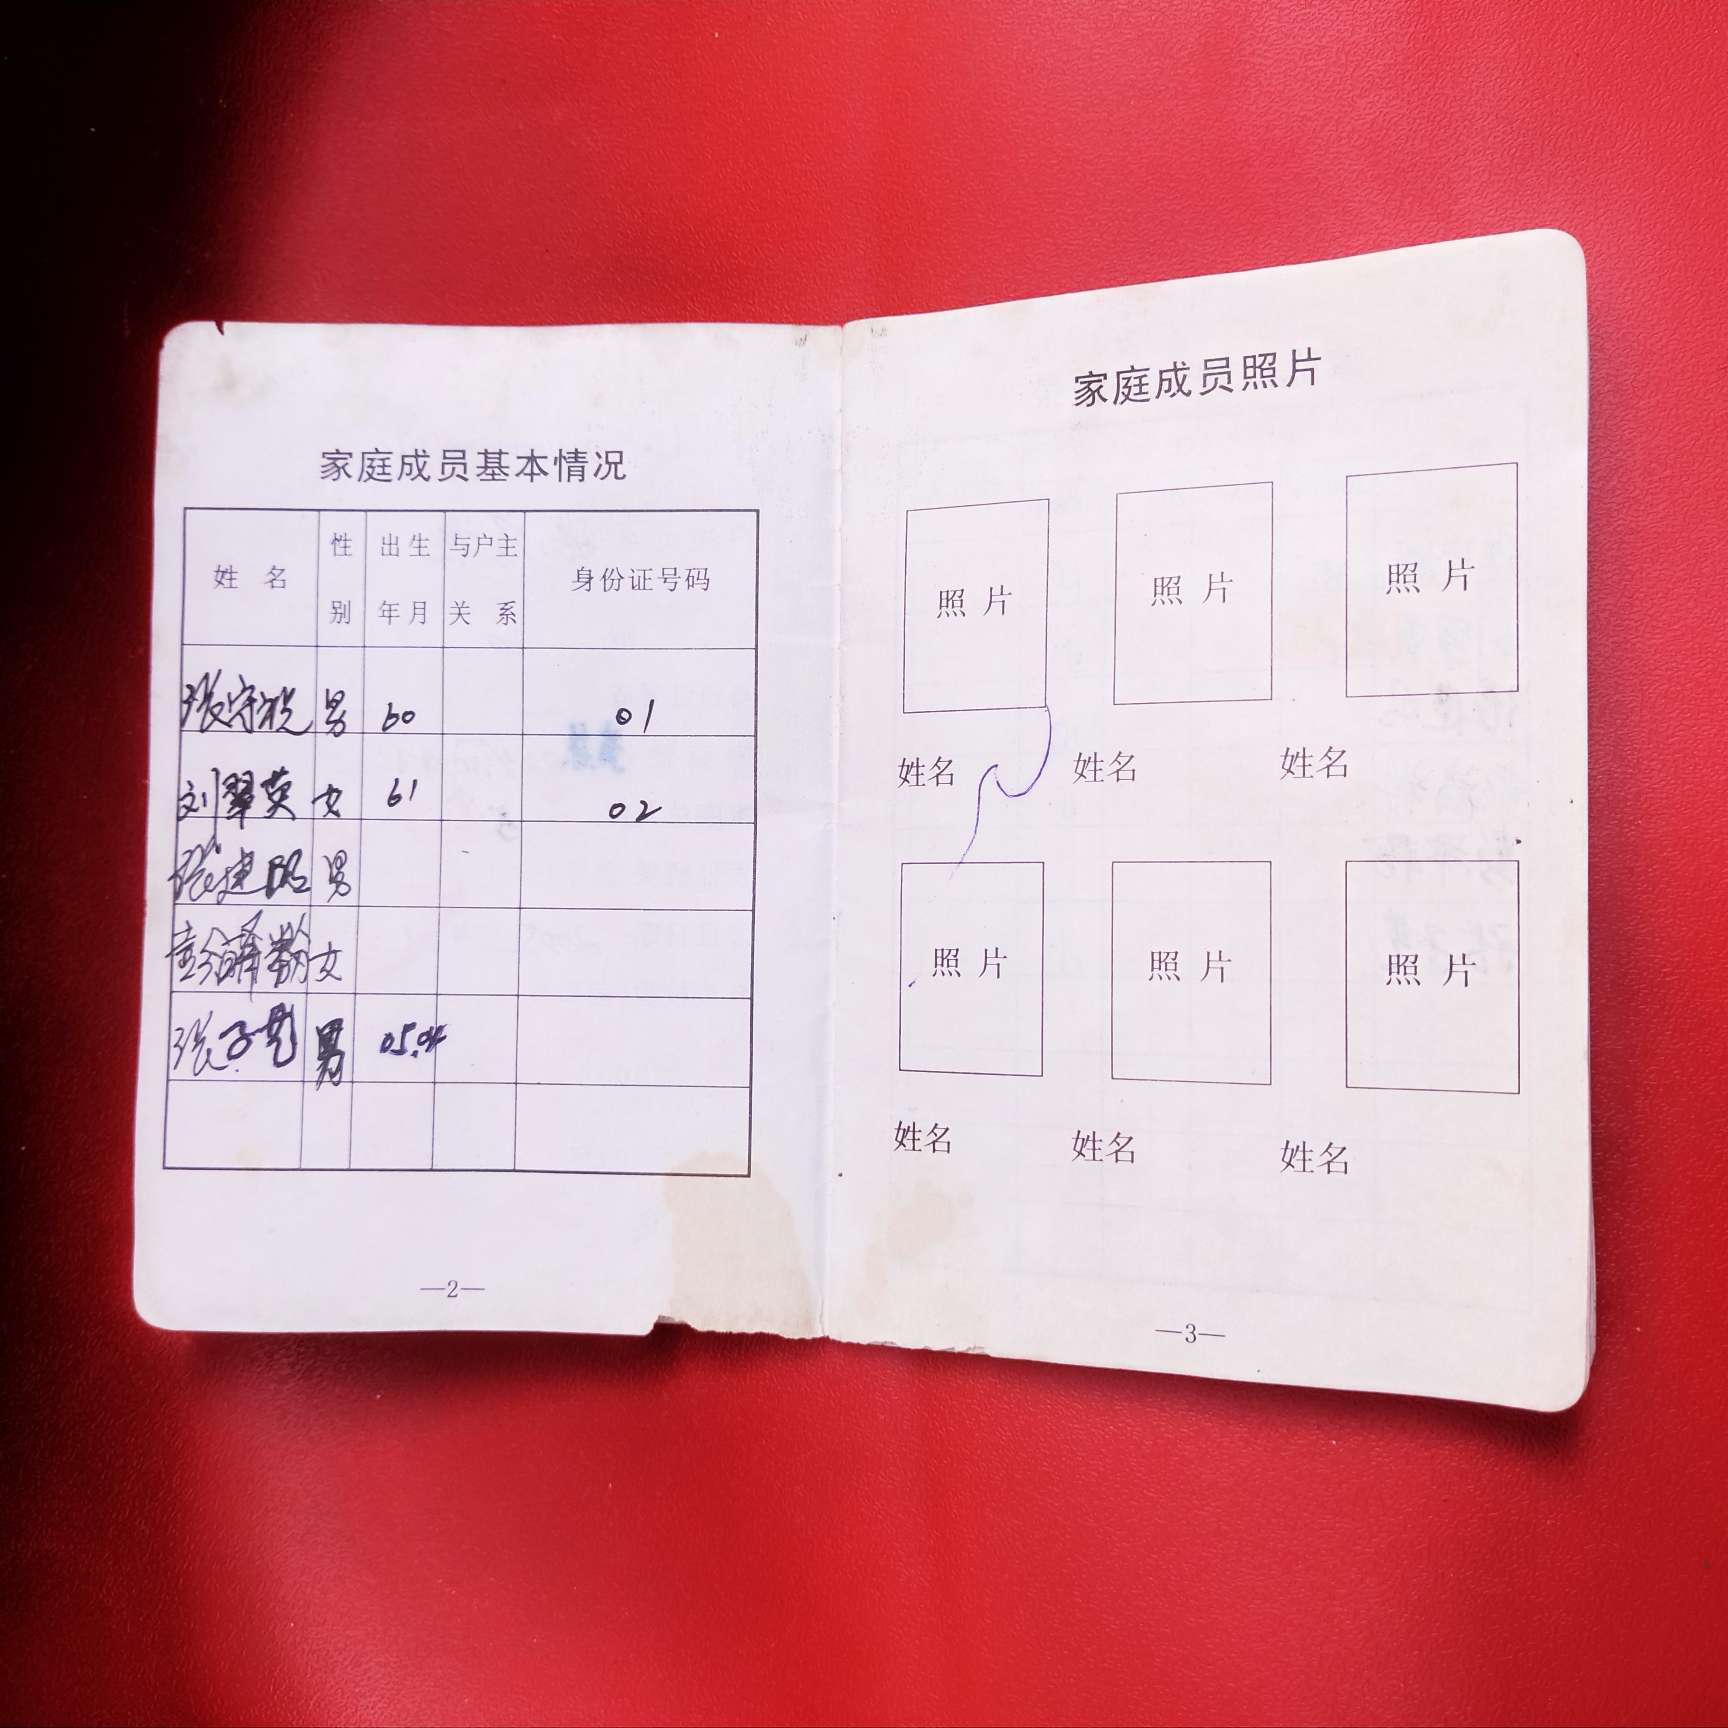 家庭成员基本情况
姓名 性别 出生年月 与户主关系 身份证号码
张守 男 60 01
刘翠英 女 61 02
张建阳 男
女
张子 男 05.04
—2—
家庭成员照片
照片 照片 照片
姓名 姓名 姓名
照片 照片 照片
姓名 姓名 姓名
—3—